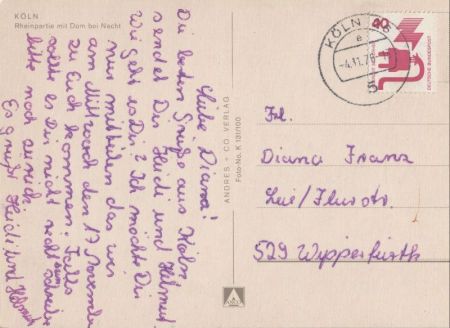 KÖLN
Rheinpartie mit Dom bei Nacht
Liebe Diana!
Die besten Grüße aus Köln
sendet Dir Heidi und Helmut.
Wie geht es Dir? Ich möchte Dir
nur mitteilen das wir
am Mittwoch den 17 November
zu Euch kommen. Falls
sollt es Dir nicht recht sein
bitte noch zurück.
Es grüßt Heidi und Helmut
ANDRES + CO VERLAG
Foto-No. K 131/100
KÖLN
e
-4.11.76
40
DEUTSCHE BUNDESPOST
Frl.
Diana Franz
529 Wipperfürth